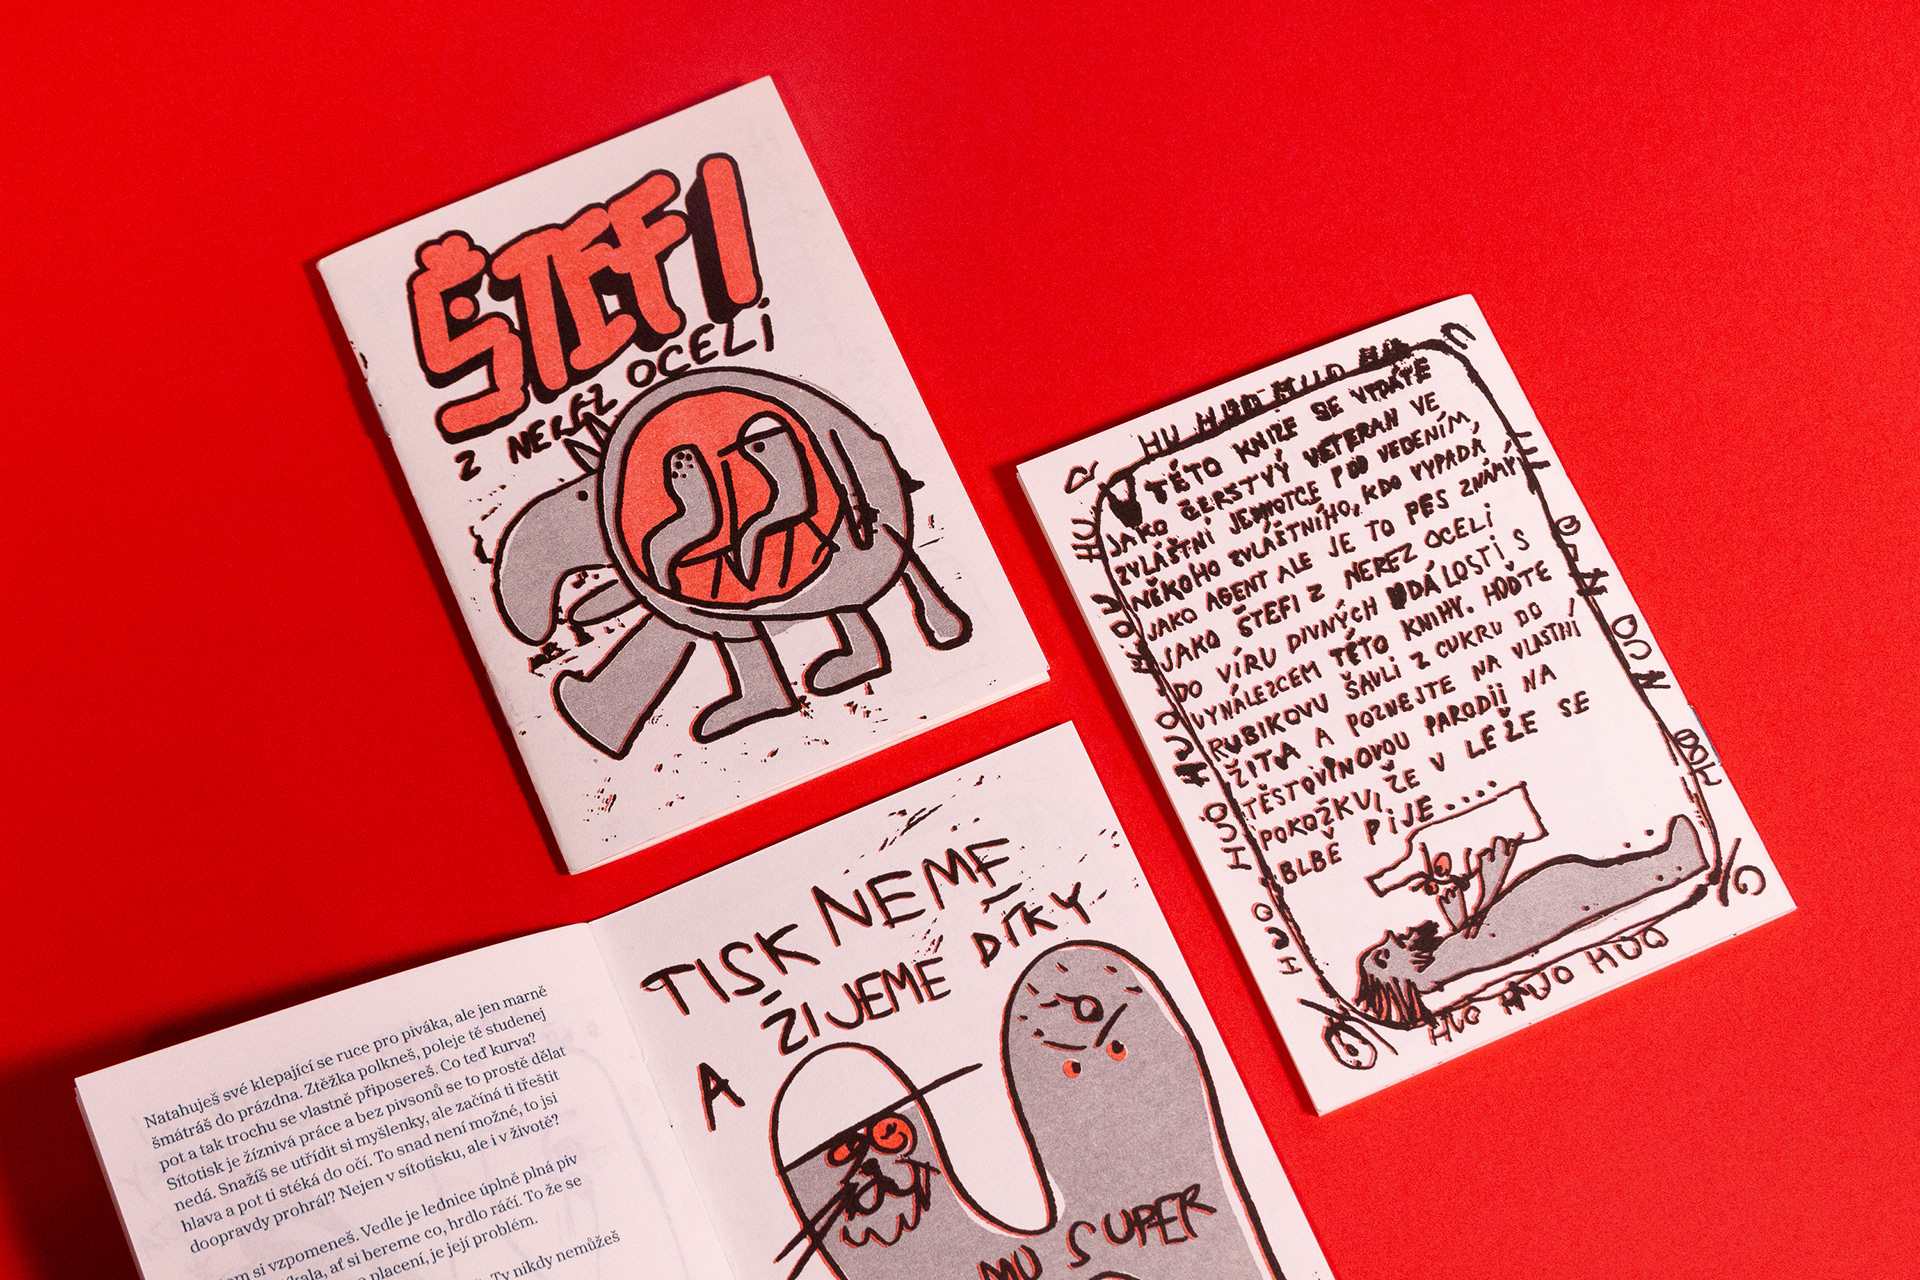 ŠTEFI
Z NEREZ OCELI
V TÉTO KNIZE SE VTDÁTE
JAKO ČERSTVÝ VETERAN VE
ZVLÁŠTNÍ JEDNOTCE POD VEDENÍM,
NĚKOHO ZVLÁŠTNÍHO, KDO VYPADÁ
JAKO AGENT ALE JE TO PES ZNÁMÝ
JAKO ŠTEFI Z NEREZ OCELI
DO VÍRU DIVNÝCH UDÁLOSTÍ S
VYNÁLEZCEM TÉTO KNIHY. HOĎTE
RUBIKOVU ŠAVLI Z CUKRU DO
ŽITA A POZNEJTE NA VLASTNÍ
TĚSTOVINOVOU PARODII NA
POKOŽKU, ŽE V LEŽE SE
BLBĚ PIJE....
TISKNEME
A ŽIJEME DÍKY
MU SUPER
Natahuješ své klepající se ruce pro piváka, ale jen marně
šmátráš do prázdna. Ztěžka polkneš, poleje tě studenej
pot a tak trochu se vlastně připosereš. Co teď kurva?
Sítotisk je žíznivá práce a bez pivsonů se to prostě dělat
nedá. Snažíš se utřídit si myšlenky, ale začíná ti třeštit
hlava a pot ti stéká do očí. To snad není možné, to jsi
doopravdy prohrál? Nejen v sítotisku, ale i v životě?
si vzpomeneš. Vedle je lednice úplně plná piv
ať si bereme co, hrdlo ráčí. To že se
placení, je její problém.
Ty nikdy nemůžeš